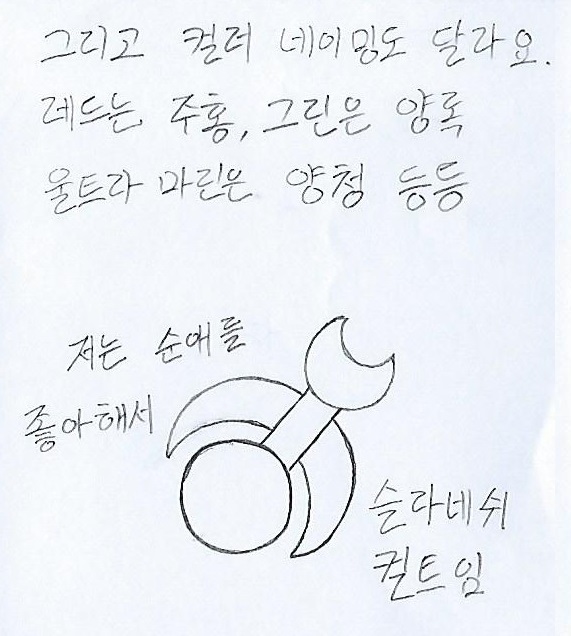 그리고 컬러 네이밍도 달라요.
레드는 주홍, 그린은 양록
울트라 마린은 양청 등등
저는 순애를
좋아해서
슬라네쉬
컬트임